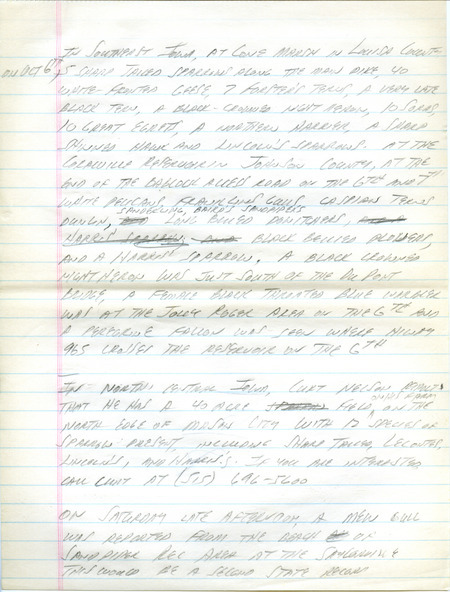 In Southeast Iowa, at Cone Marsh in Louisa County
on Oct 6th, 5 Sharp Tailed Sparrows along the main dike, 40
White-Fronted Geese, 7 Forster's Terns, a very late
Black Tern, a Black-Crowned Night Heron, 10 Soras,
10 Great Egrets, a Northern Harrier, a Sharp
Shinned Hawk and Lincoln's Sparrows. At the
Coralville Reservoir in Johnson County, at the
end of the Babcock Access Road on the 6th and 7th
White Pelicans, Franklins Gulls, Caspian Terns
Sanderling, Baird's Sandpipers
Dunlin, Long Billed Dowitchers,
Harris' Sparrow and Black Bellied Plovers,
and a Harris' Sparrow. A Black Crowned
Night Heron was just south of the DuPont
Bridge, a female Black Throated Blue Warbler
was at the Jolly Roger Area on the 6th and
a Peregrine Falcon was seen where Hiway
965 crosses the reservoir on the 6th

In North Central Iowa, Curt Nelson reports
that he has a 40 acre field, on his farm, on the
north edge of Mason City with 12 species of
sparrow present, including Sharp Tailed, LeContes,
Lincoln's, and Harris's. If you are interested
call Curt at (515) 696-5600

On Saturday late afternoon, a Mew Gull
was reported from the beach of
Sandpiper Rec Area at the Saylorville
This would be a second state record